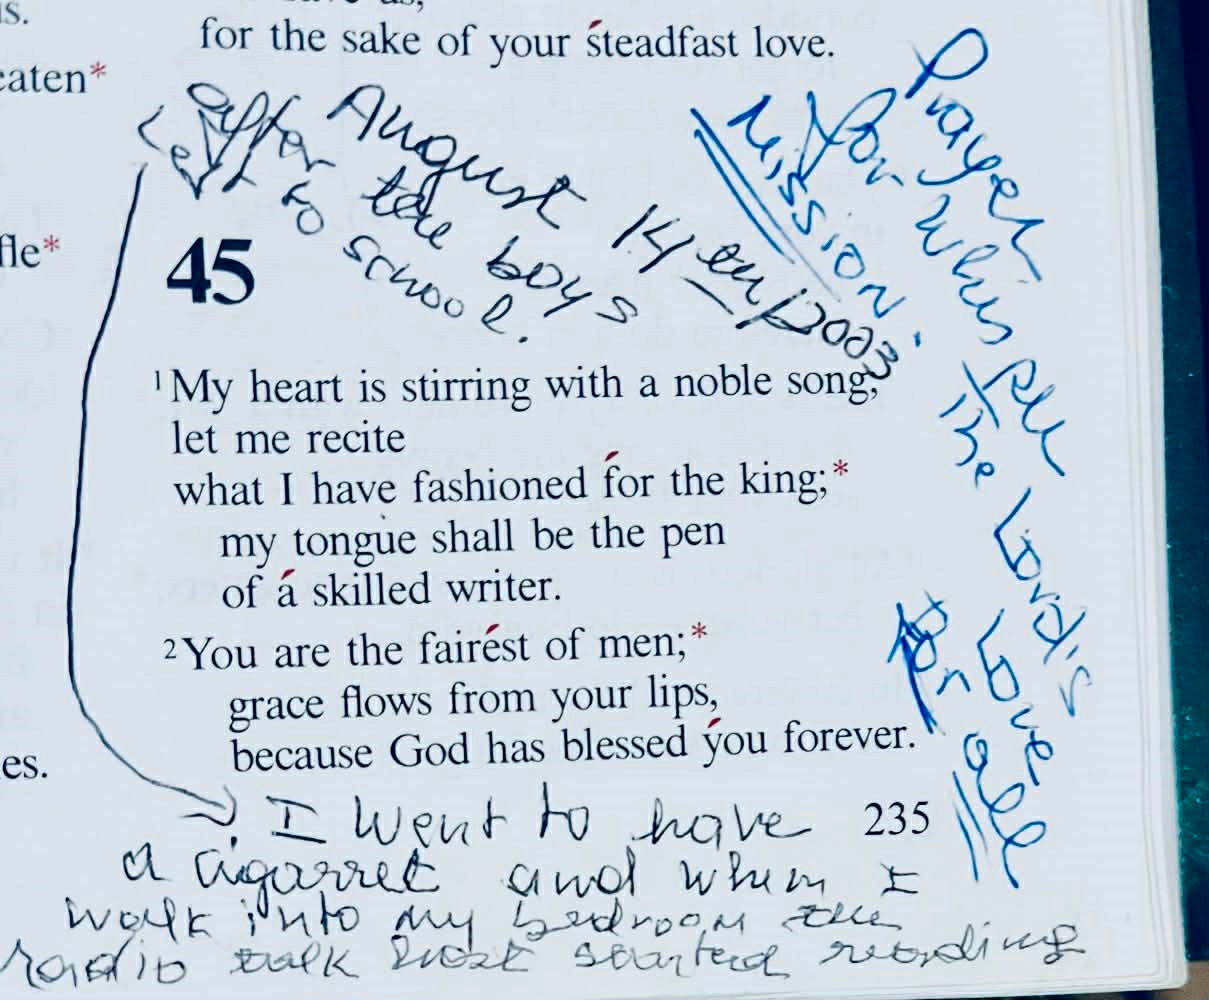 for the sake of your śteadfast love.
eaten*
August 14
After the boys
left to school.
fle*
45
Prayer
for whisper
Mission.
The Lord's
Love
for all
¹My heart is stirring with a noble song,
let me recite
what I have fashioned for the king;*
my tongue shall be the pen
of á skilled writer.
²You are the fairést of men;*
grace flows from your lips,
because God has blessed ýou forever.
es.
I went to have
235
a cigarret and when I
walk into my bedroom the
radio talk host started reading